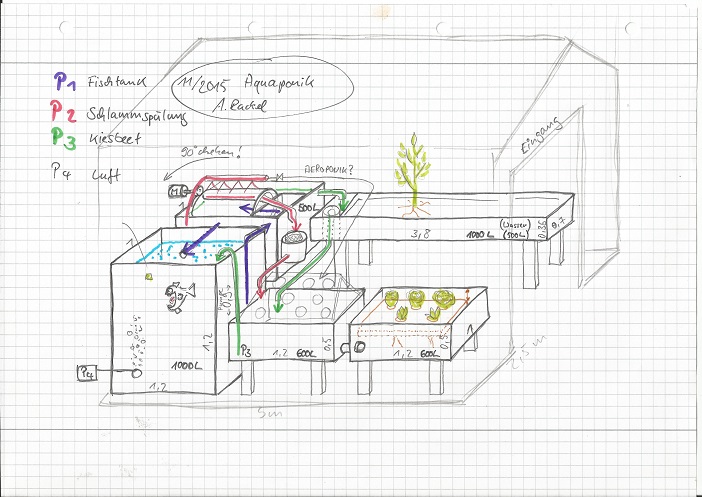 P1 Fischtank
P2 Schlammspülung
P3 Kiesbeet
P4 Luft
11/2015 Aquaponik
A. Rackel
90° drehen!
AEROPONIK?
Eingang
M
600L
3,8
1000L
(Wasser)
(500L)
0,36
0,7
0,9
1,2
1000L
1,2
P4
P3
1,2
600L
0,5
1,2
600L
0,5
1
5m
2,5m